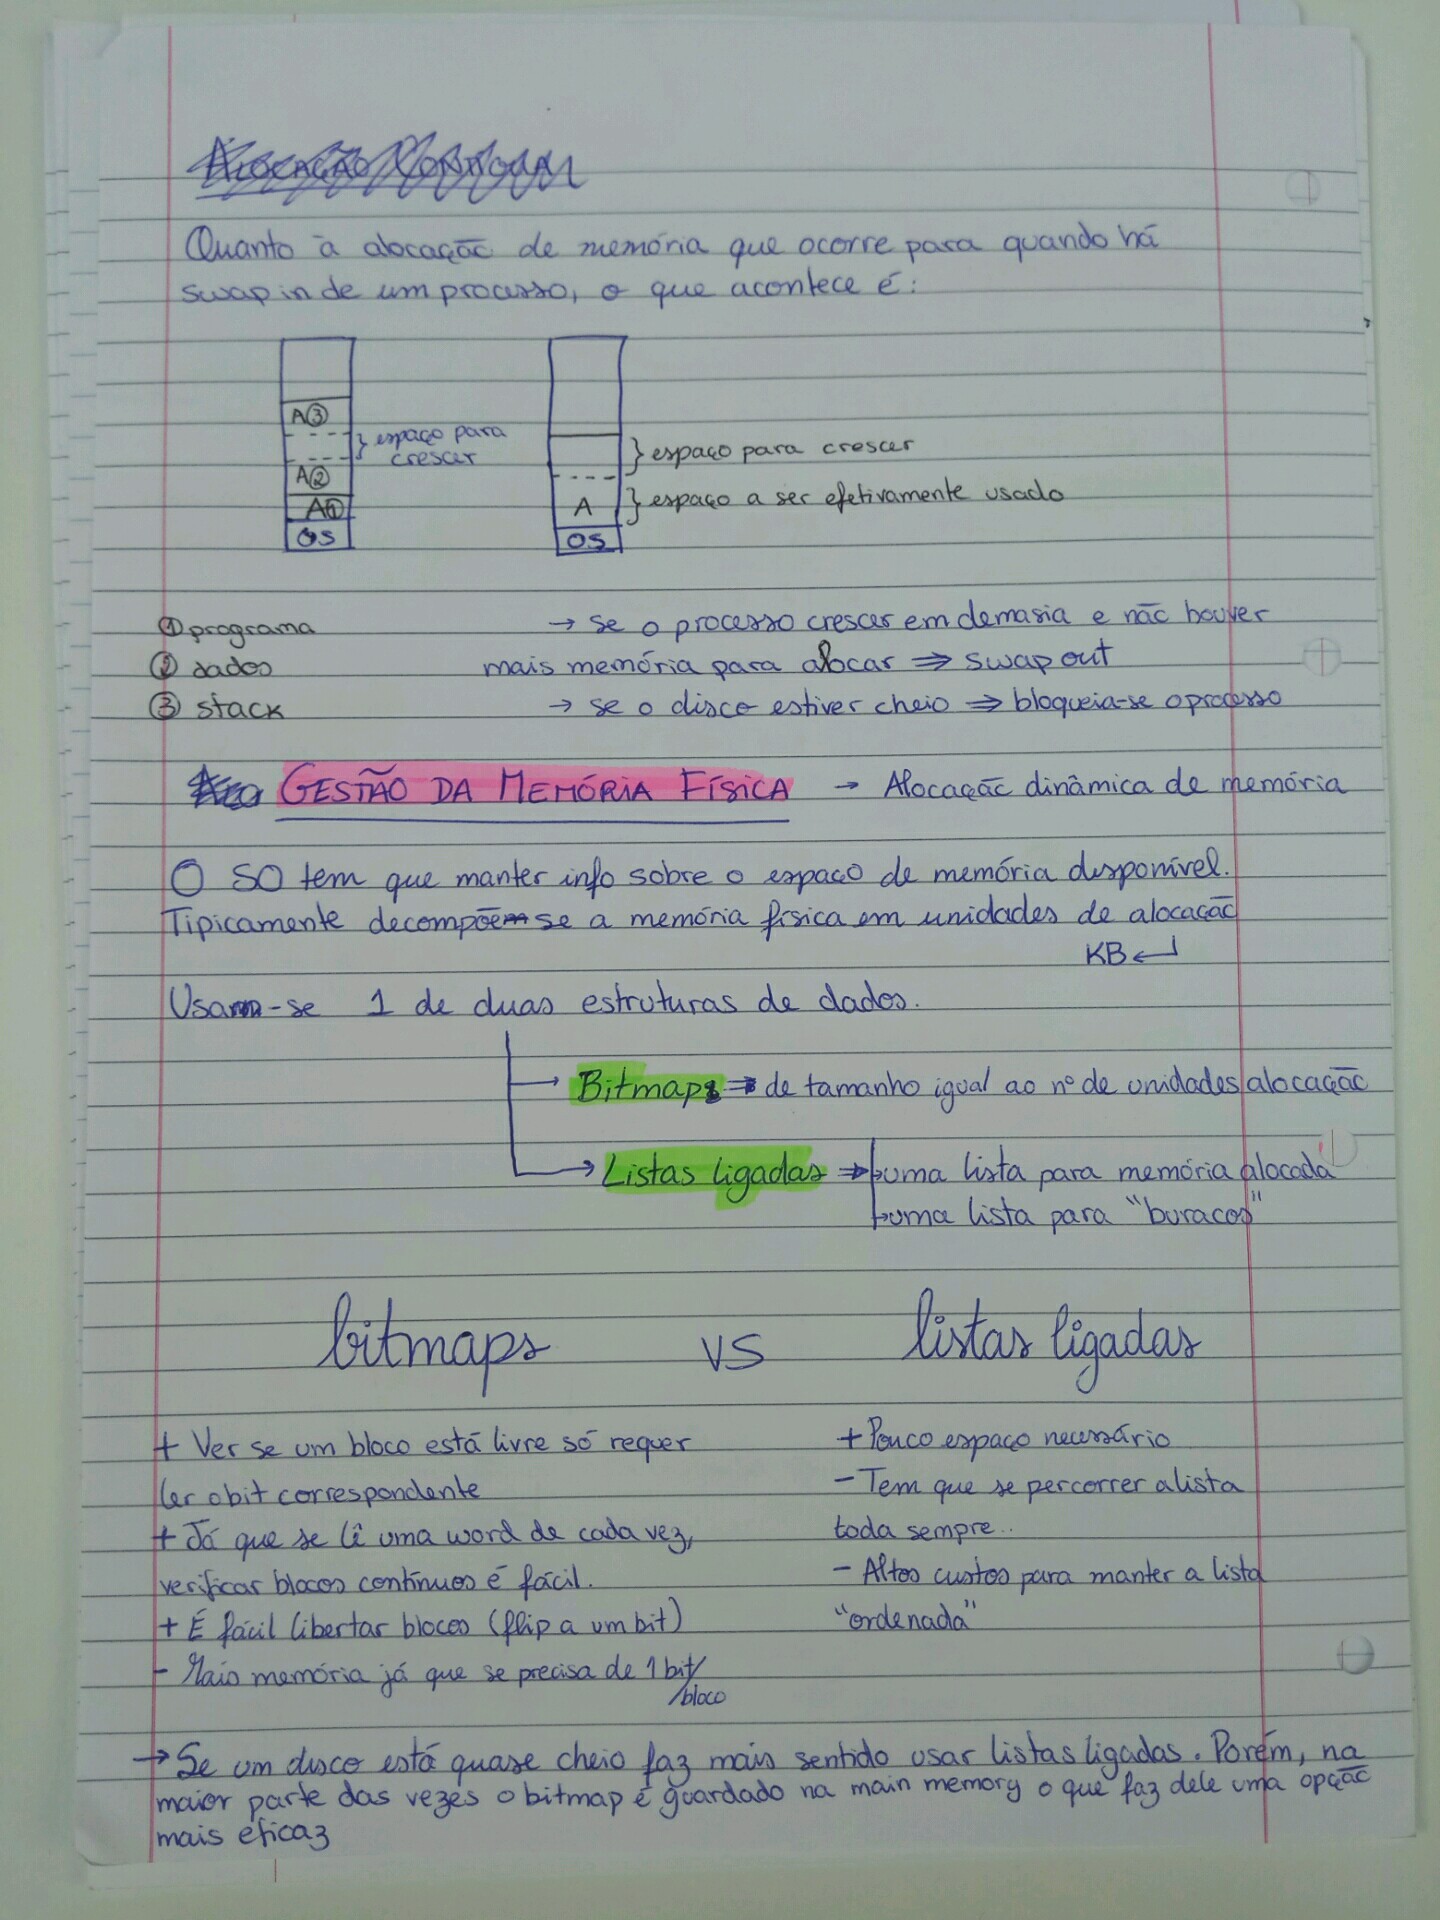 Quanto à alocação de memória que ocorre para quando há
swap in de um processo, o que acontece é:
A③
} espaço para
crescer
A②
A①
OS
} espaço para crescer
A
} espaço a ser efetivamente usado
OS
① programa
② dados
③ stack
→ se o processo crescer em demasia e não houver
mais memória para alocar ⇒ swap out
→ se o disco estiver cheio ⇒ bloqueia-se o processo
GESTÃO DA MEMÓRIA FÍSICA → Alocação dinâmica de memória
O SO tem que manter info sobre o espaço de memória disponível.
Tipicamente decompõe-se a memória física em unidades de alocação
KB ↵
Usa-se 1 de duas estruturas de dados.
→ Bitmaps ⇒ de tamanho igual ao nº de unidades alocação
→ Listas ligadas ⇒ uma lista para memória alocada
uma lista para "buracos"
bitmaps vs listas ligadas
+ Ver se um bloco está livre só requer
ler o bit correspondente
+ Já que se lê uma word de cada vez,
verificar blocos contínuos é fácil.
+ É fácil libertar blocos (flip a um bit)
- Mais memória já que se precisa de 1 bit/
/bloco
+ Pouco espaço necessário
- Tem que se percorrer a lista
toda sempre..
- Altos custos para manter a lista
"ordenada"
→ Se um disco está quase cheio faz mais sentido usar listas ligadas. Porém, na
maior parte das vezes o bitmap é guardado na main memory o que faz dele uma opção
mais eficaz